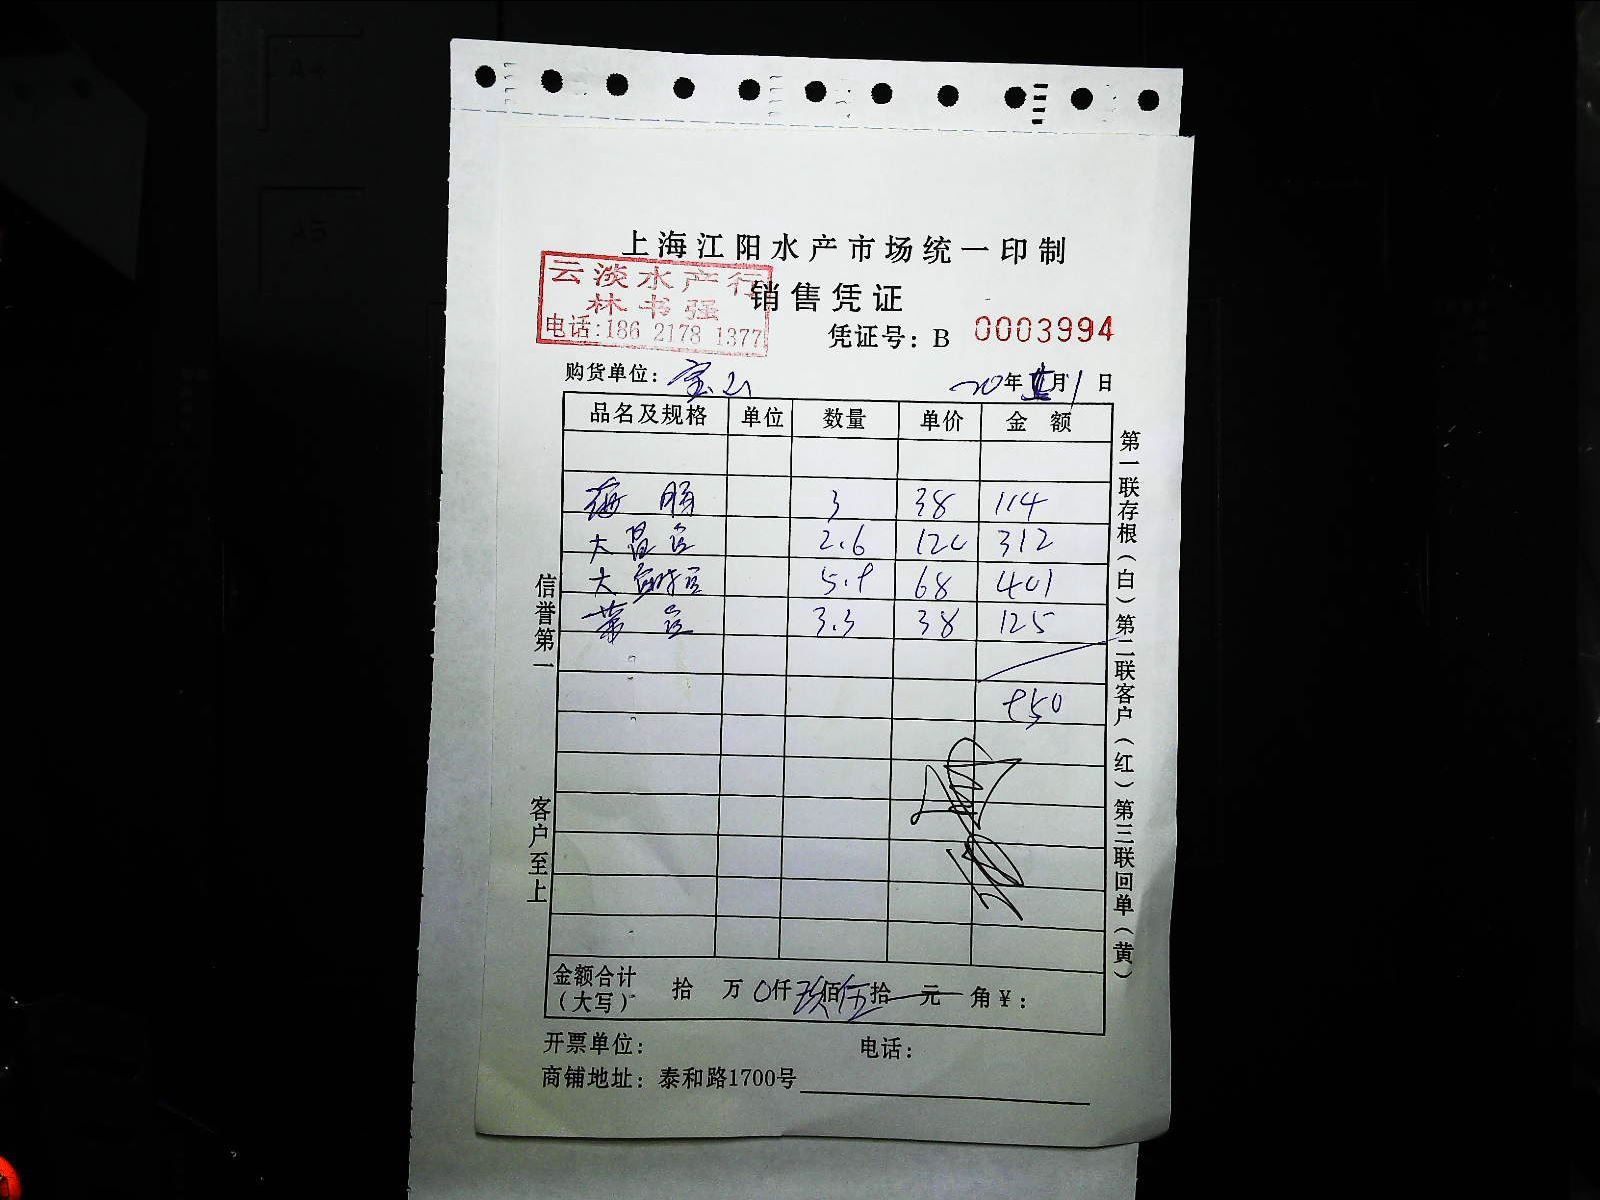 上海江阳水产市场统一印制
云淡水产行
林书强
电话:186 2178 1377
销售凭证
凭证号：B 0003994
购货单位：宝山
20年 月1日
品名及规格 单位 数量 单价 金额
3 38 114
大 2.6 120 312
大 5.9 68 401
3.3 38 125
950
第一联存根（白）第二联客户（红）第三联回单（黄）
信誉第一
客户至上
金额合计（大写） 拾 万 0仟玖佰伍拾 元 角¥：
开票单位： 电话：
商铺地址：泰和路1700号